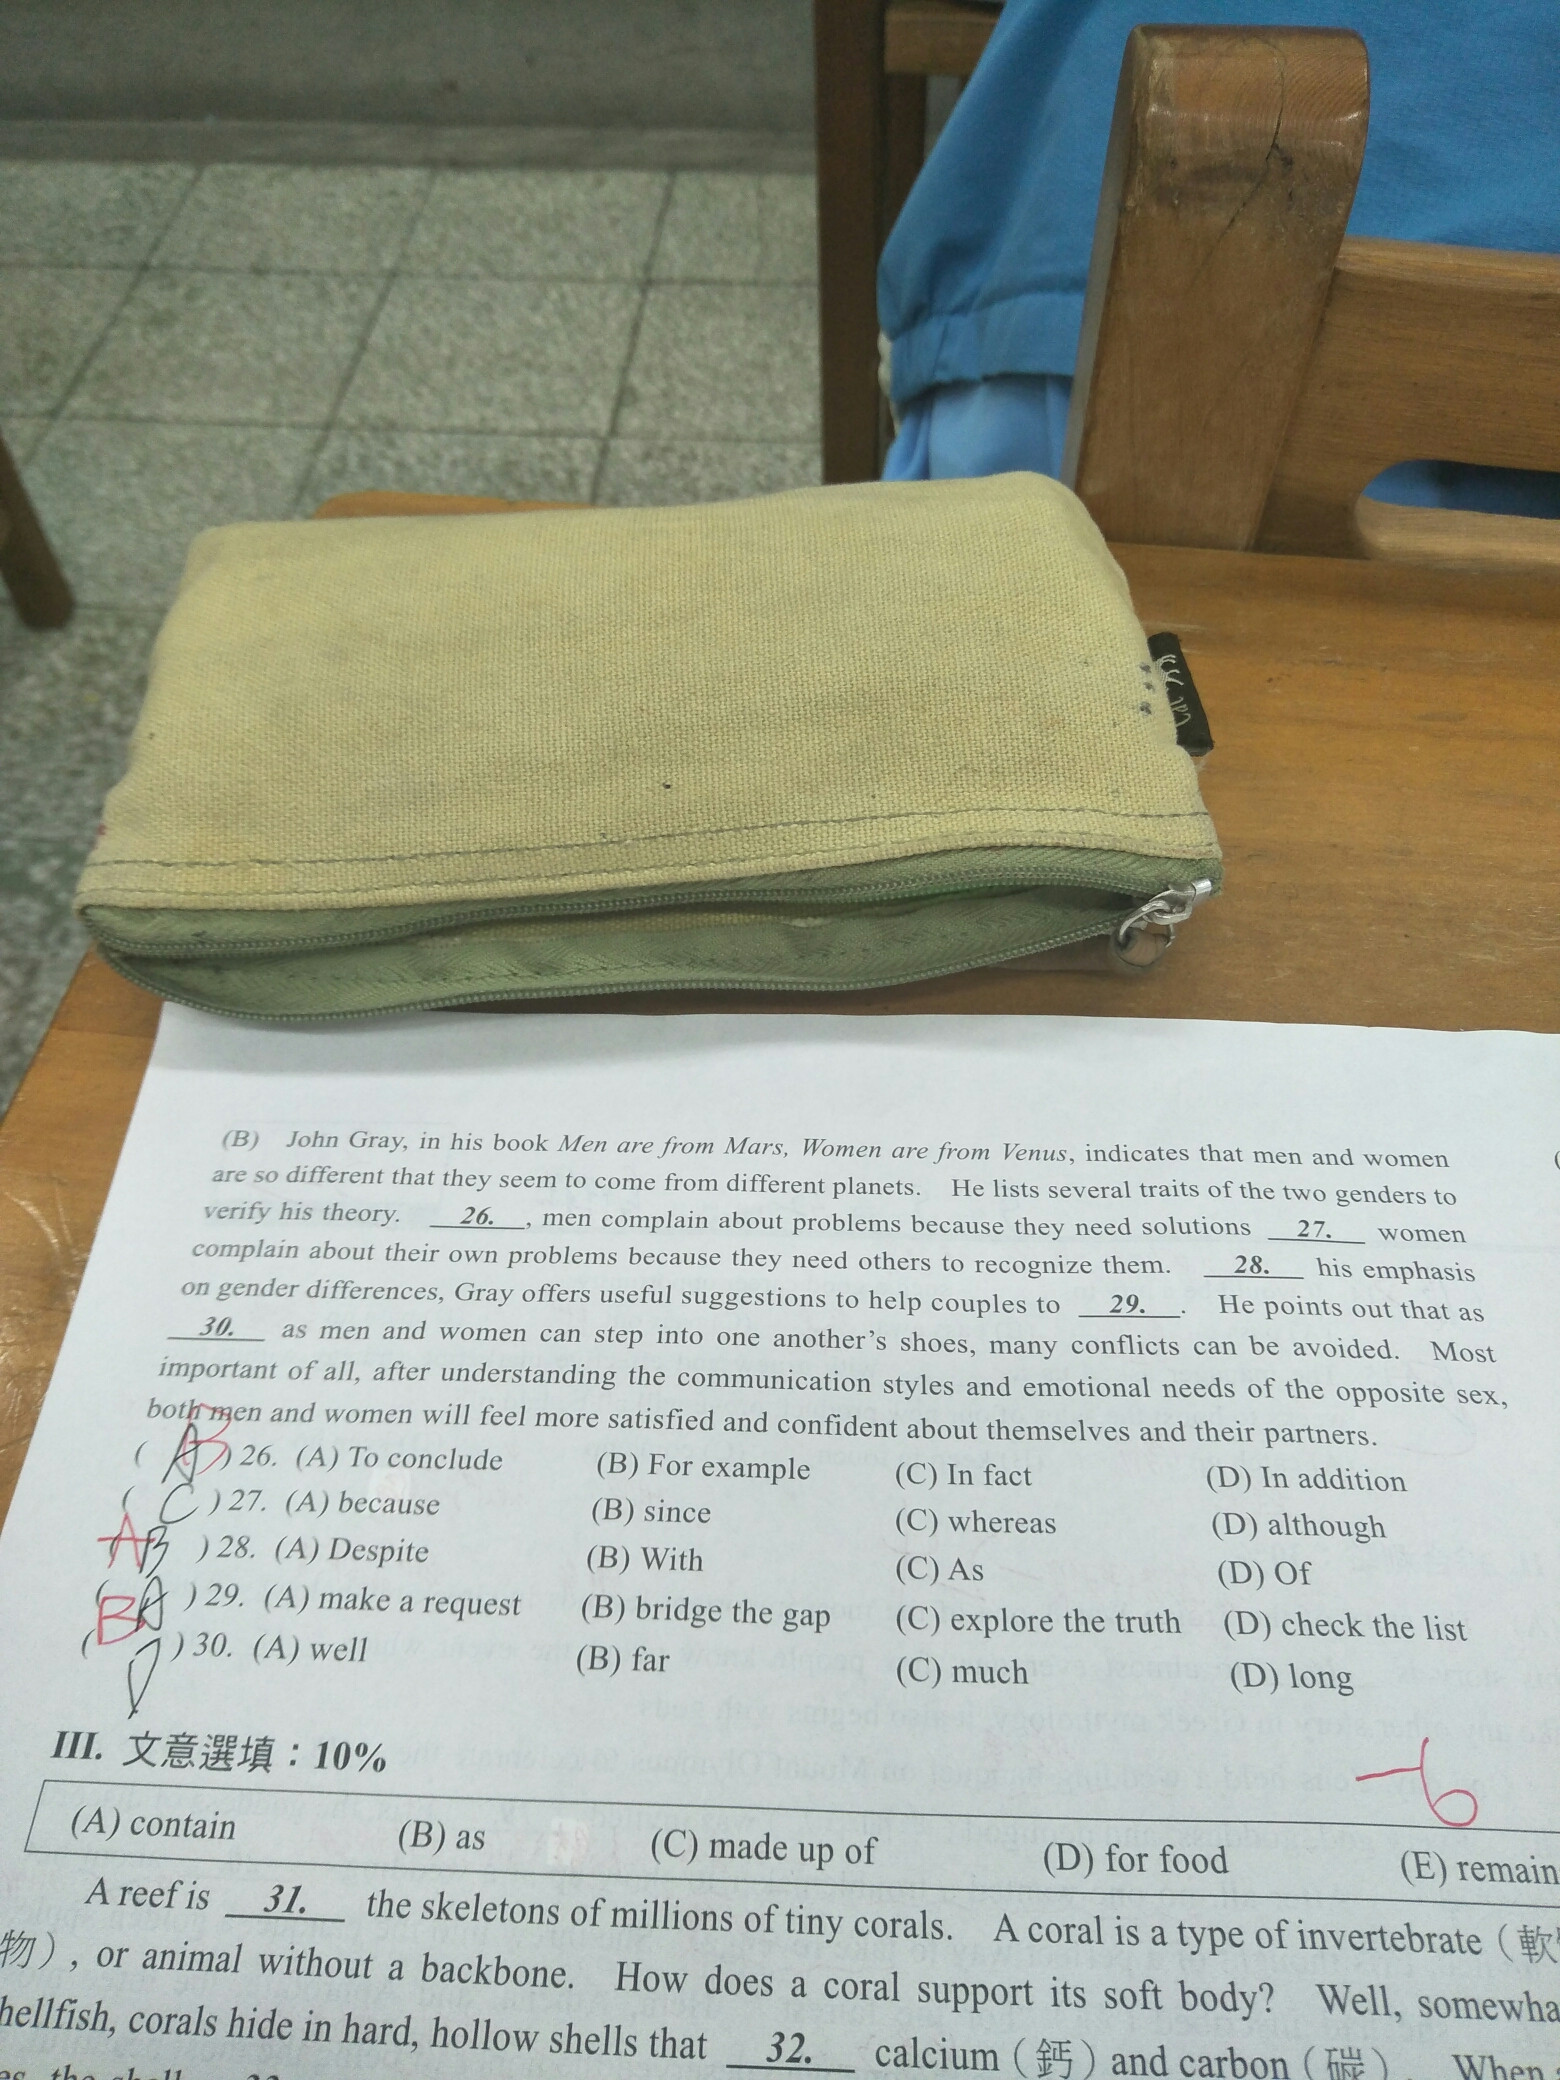 (B) John Gray, in his book Men are from Mars, Women are from Venus, indicates that men and women
are so different that they seem to come from different planets. He lists several traits of the two genders to
verify his theory. 26. , men complain about problems because they need solutions 27. women
complain about their own problems because they need others to recognize them. 28. his emphasis
on gender differences, Gray offers useful suggestions to help couples to 29. . He points out that as
30. as men and women can step into one another's shoes, many conflicts can be avoided. Most
important of all, after understanding the communication styles and emotional needs of the opposite sex,
both men and women will feel more satisfied and confident about themselves and their partners.
( A B ) 26. (A) To conclude (B) For example (C) In fact (D) In addition
( C ) 27. (A) because (B) since (C) whereas (D) although
( A B ) 28. (A) Despite (B) With (C) As (D) Of
( B A ) 29. (A) make a request (B) bridge the gap (C) explore the truth (D) check the list
( D ) 30. (A) well (B) far (C) much (D) long
III. 文意選填：10%
-6
(A) contain (B) as (C) made up of (D) for food (E) remain
A reef is 31. the skeletons of millions of tiny corals. A coral is a type of invertebrate（軟
物）, or animal without a backbone. How does a coral support its soft body? Well, somewha
hellfish, corals hide in hard, hollow shells that 32. calcium（鈣）and carbon（碳）. When